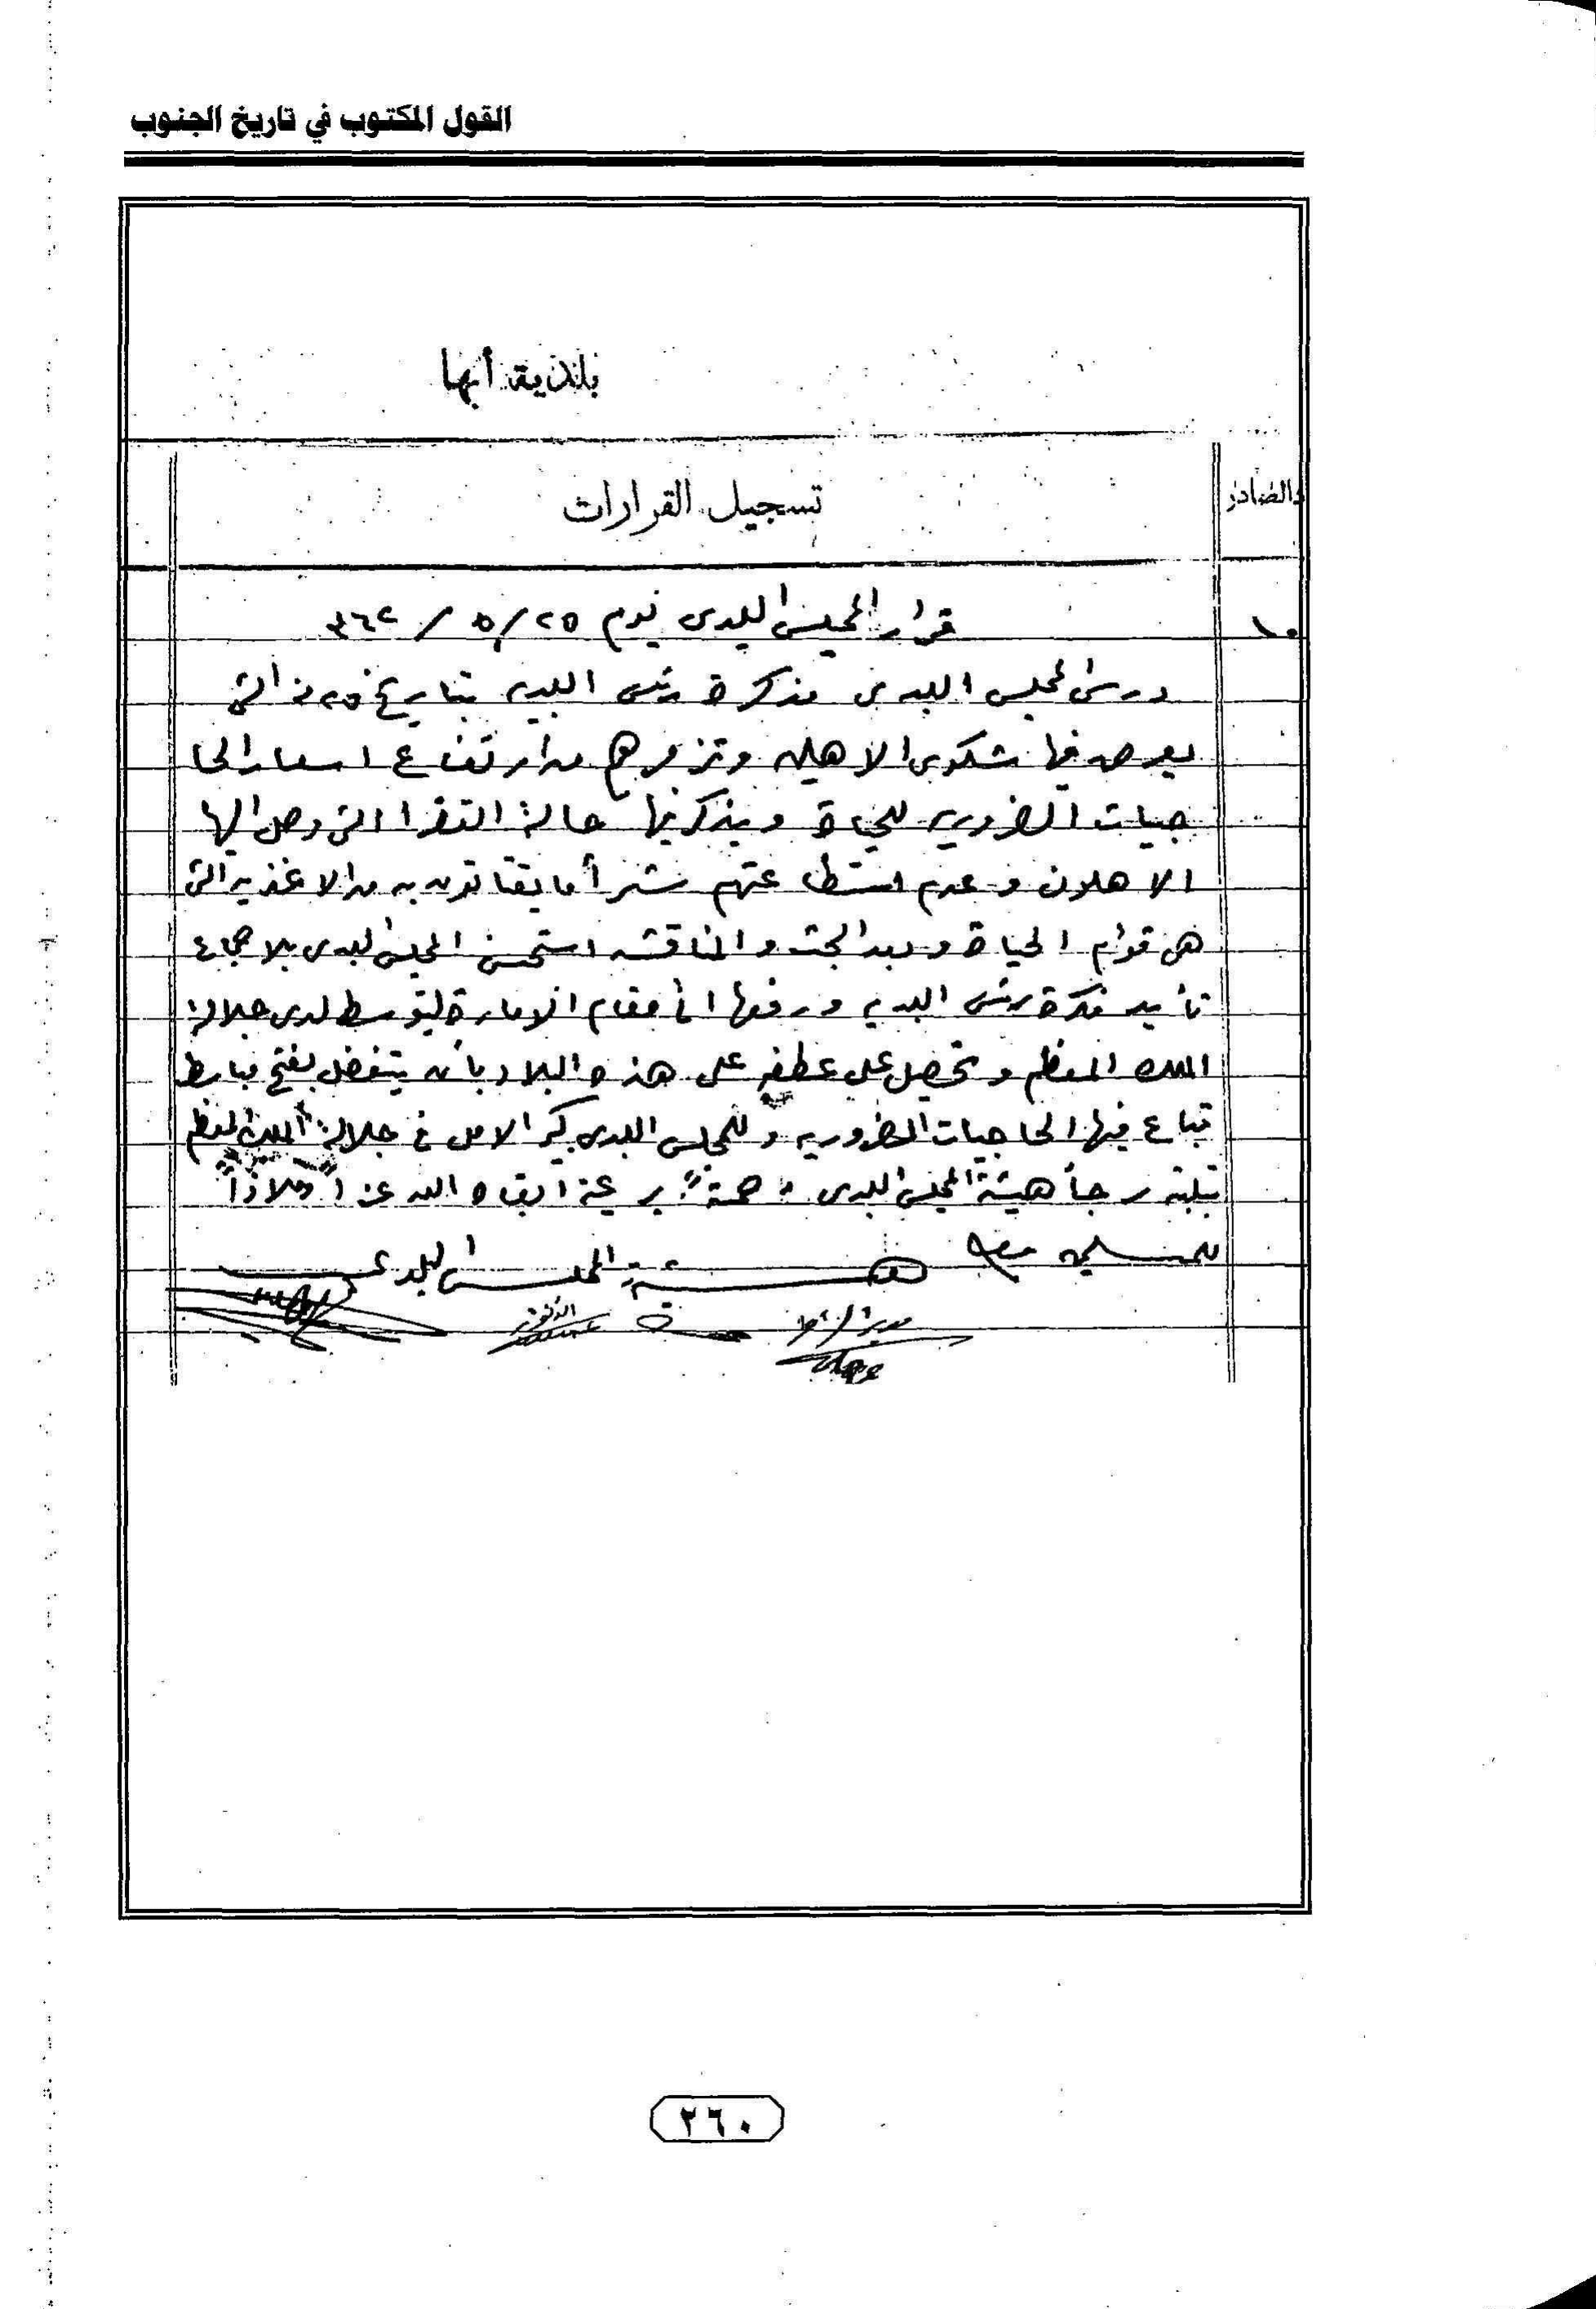 القول المكتوب في تاريخ الجنوب
بلدية أبها
الصادر
تسجيل القرارات
١٠
قرار المجلس البلدي يوم ٢٥/٥/٣٦٢
درس المجلس البلدي مذكرة رئيس البلديه بتاريخ التي
يعرض فيها شكوى الاهلين وتذمرهم من ارتفاع اسعار الحا
جيات الضروريه للحياة ويذكر فيها حالة الفقر التي وصل اليها
الاهلون وعدم استطاعتهم شرأ ما يقتاتون به من الاغذيه التي
هي قوام الحياة وبعد البحث والمناقشه استحسن المجلس البلدي بلاجماع
تأييد فكرة رئيس البلديه ورفعها الى مقام الامارة ليتوسط لدى جلالة
الملك المعظم وتحصل على عطفه على هذه البلاد بأن يتفضل بفتح
تباع فيها الحاجيات الضروريه وللمجلس البلدي كبير الامل في جلالة الملك المعظم
بتلبية رجأ هيئة المجلس البلدي برعيته ابقاه الله عزاً وملاذاً
للمسلمين
هيئة المجلس البلدي
٢٦٠